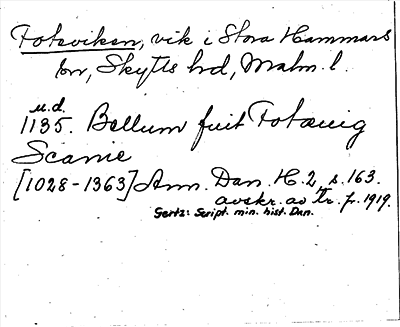 Foteviken, vik i Stora Hammars
sn, Skytts hd, Malm. l.
u.d.
1135. Bellum fuit Fotæuig
Scanie
[1028-1363] Ann. Dan. H. 2, s. 163.
avskr. av Tr. fr. 1919.
Gertz: Script. min. hist. Dan.